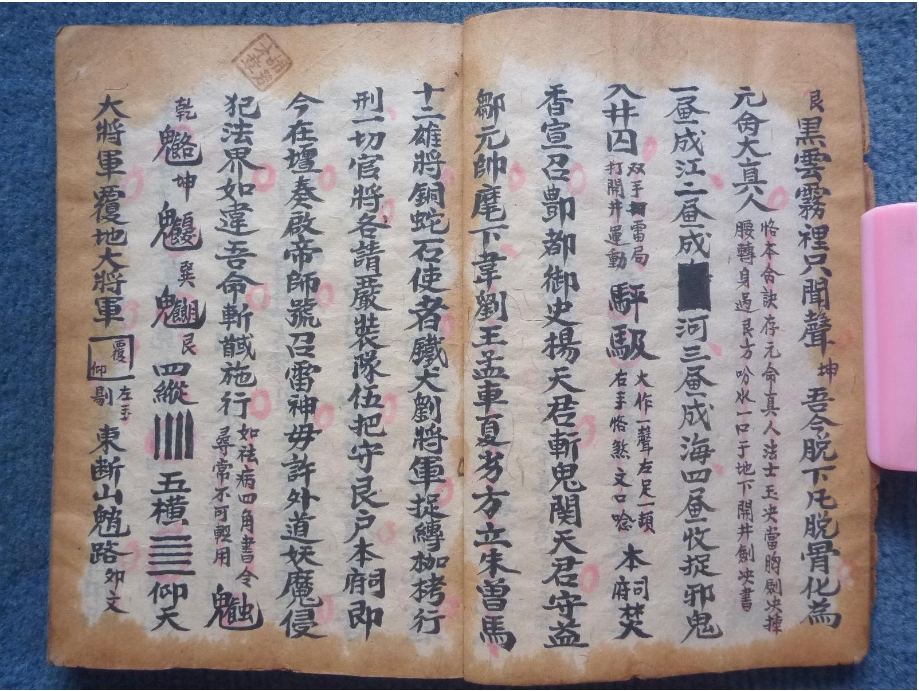 艮 黑雲霧裡只聞聲 坤 吾今脱下凡脱骨化為
元命大真人 恪本命訣存元命真人法士玉决當胸劍决揷
腰轉身過艮方吩水一口于地下開井劍决書
一畫成江二畫成 河三畫成海四畫收捉邪鬼
入井囚 双手 雷局
打開井運動 大作一聲左足一頓
右手恪煞文口唸 本司焚
香宣召酆都御史楊天君斬鬼関天君守益
鄒元帥麾下韋劉王孟車夏 方立朱曽馬
十二雄將銅蛇石使者鐵犬劉將軍捉縛枷栲行
刑一切官將各請嚴裝隊伍把守艮户本司即
今在壇奏啟帝師號召雷神毋許外道妖魔侵
犯法界如違吾命斬馘施行 如祛病四角書令
尋常不可輕用
乾 坤 巽 艮 四縱 五横 仰天
大將軍覆地大將軍 覆
仰 左手
剔 東断山 路